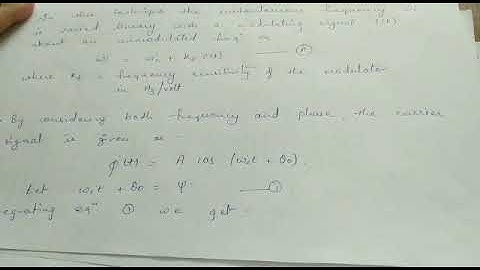 In this technique the instantaneous frequency ωi
is varied linearly with a modulating signal
about an unmodulated freqⁿ ωc
ωi = ωc + Kf x(t) — (A)
where Kf = frequency sensitivity of the modulator
in Hz/volt
By considering both frequency and phase, the carrier
signal is given as -
φ(t) = A cos (ωct + θ0).
Let ωct + θ0 = φ — ①
eqⁿ ① we get -